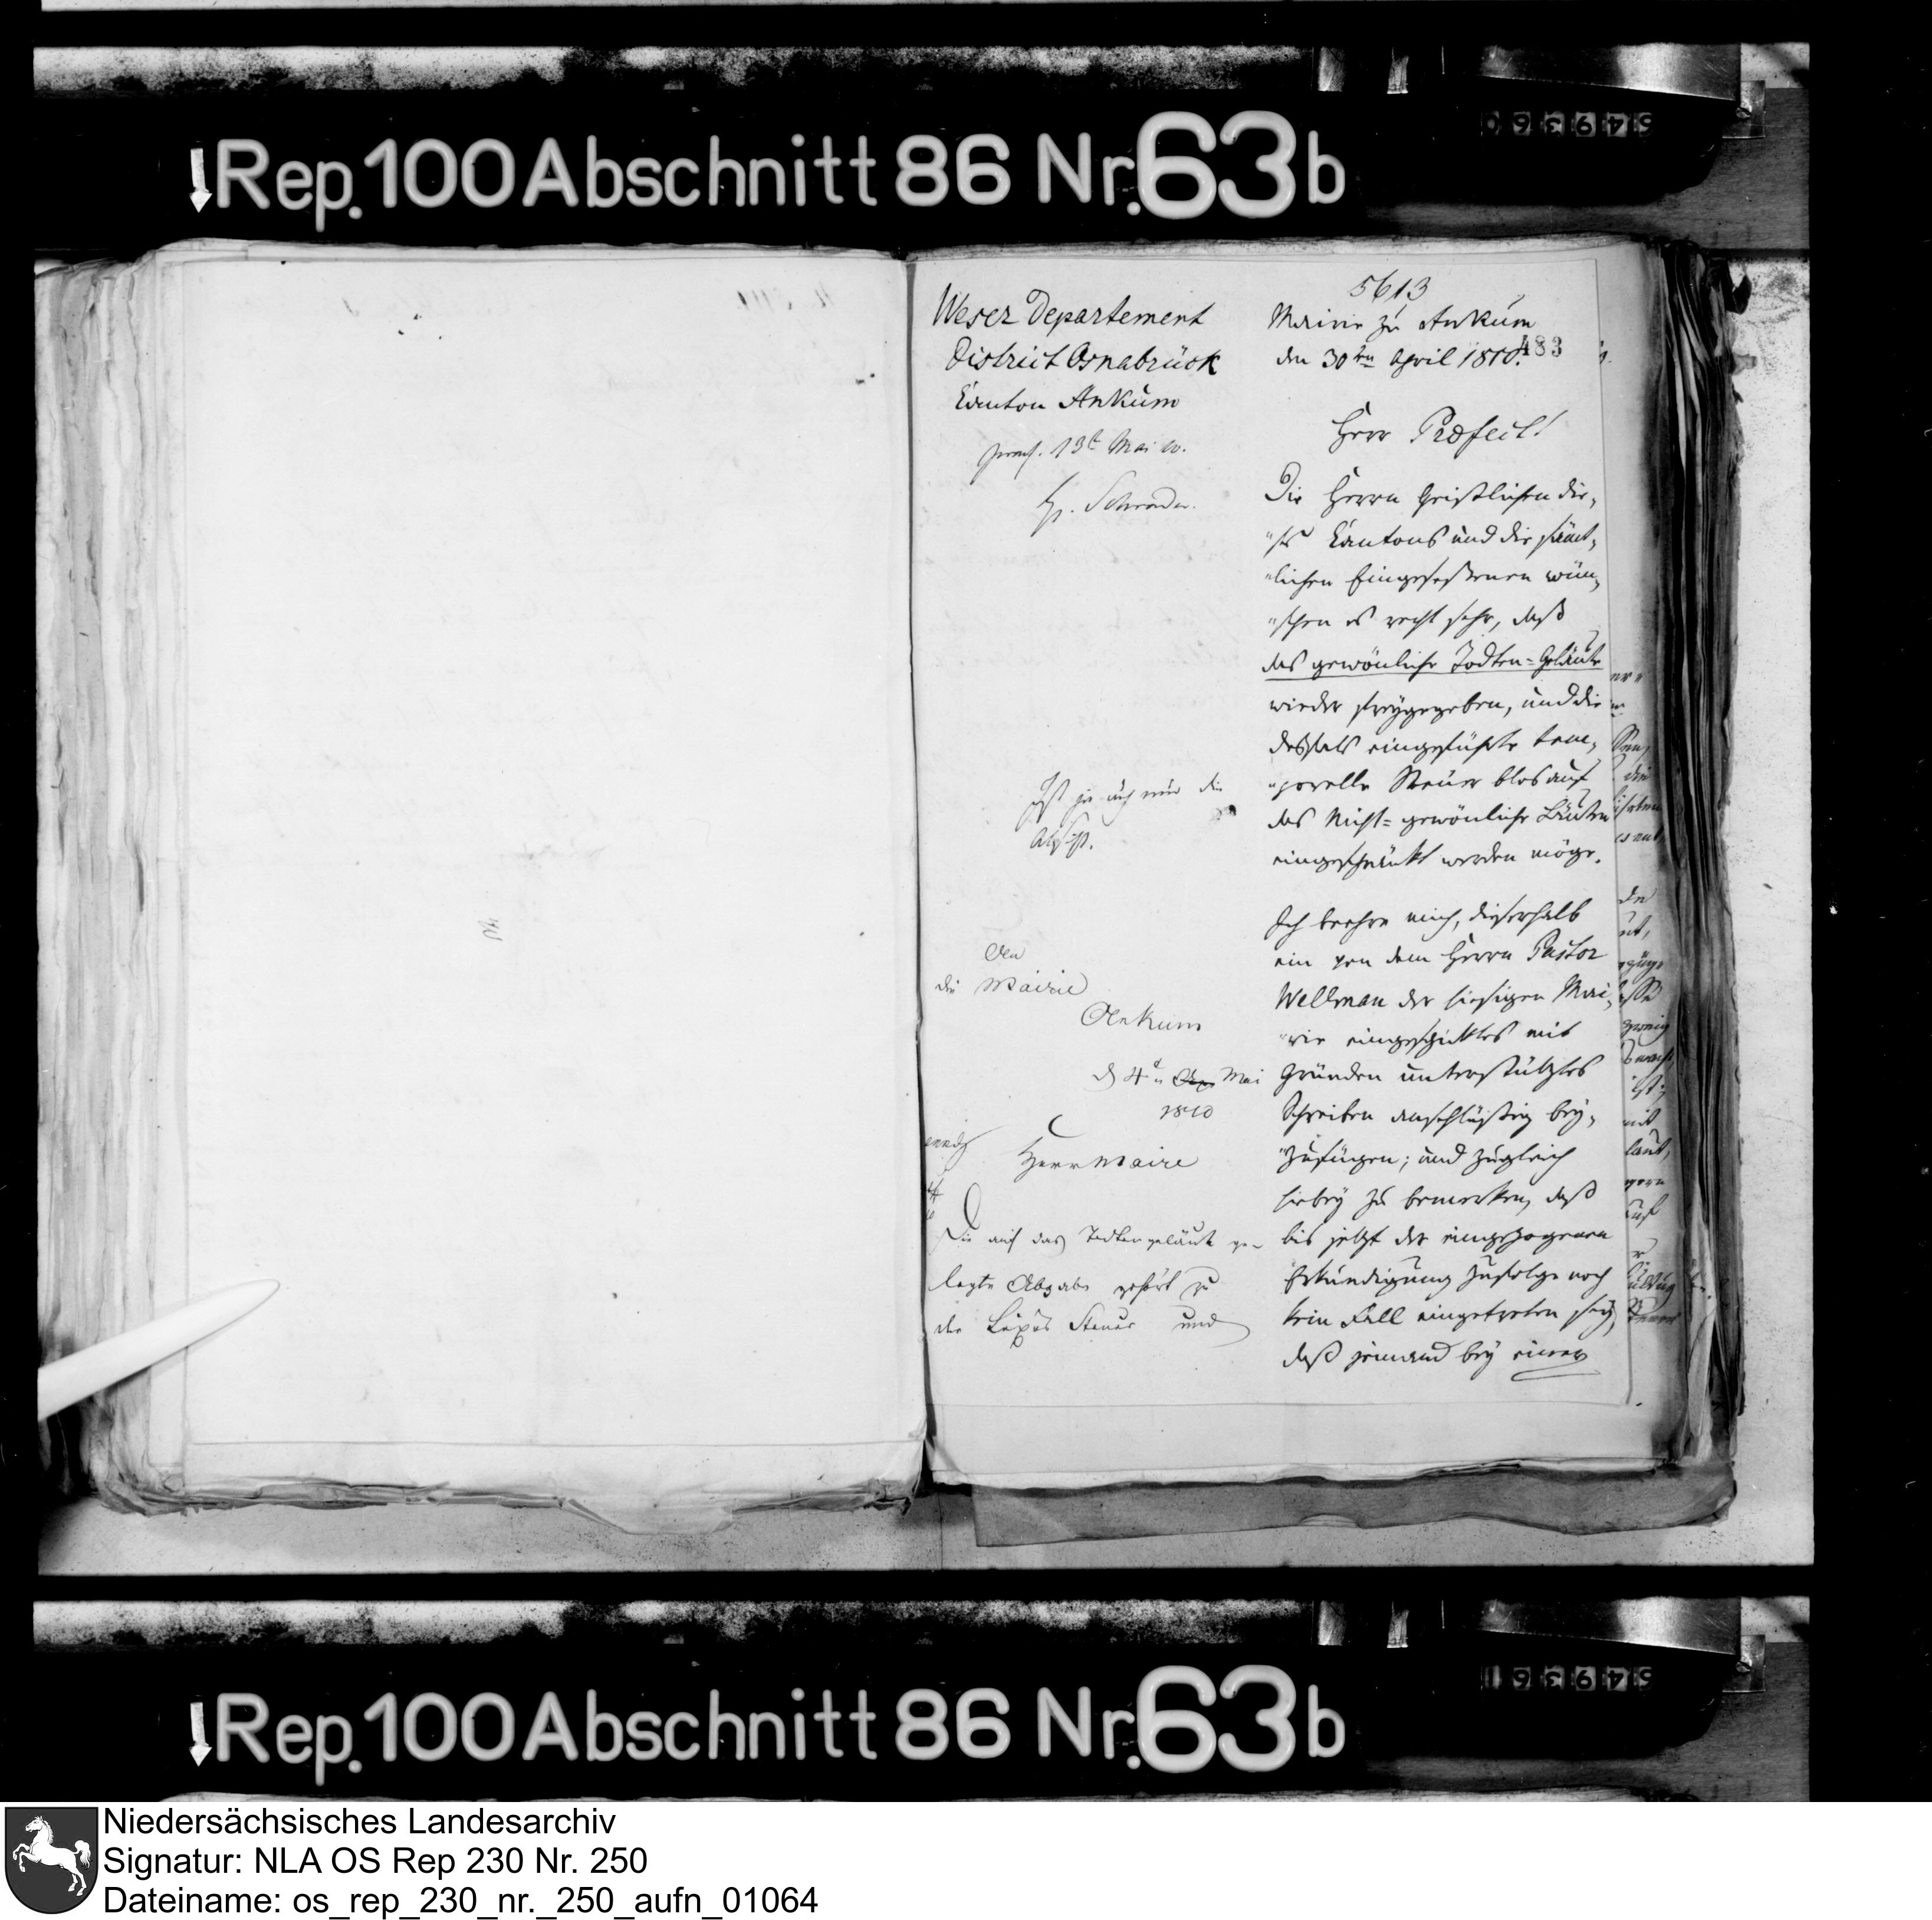 Rep. 100 Abschnitt 86 Nr. 63b
549360
5613
483
Weser Departement
District Osnabrück
Canton Ankum
praes. 13t Mai 10.
H. Schrader.
Mairie zu Ankum
den 30ten April 1810.
Herr Praefect!
Die Herrn Geistlichen die,
"ses Cantons und die sämt,
"lichen Eingesessenen wün,
"schen es recht sehr, daß
das gewönliche Todten-Geläute
wieder freygegeben, und die
desfals eingeführte tem,
"porelle Steuer blos auf
das Nicht-gewönliche Läuten
eingeschränkt werden möge.
Ich beehre mich, dieserhalb
ein von dem Herrn Pastor
Wellman der hiesigen Mai,
"rie eingeschicktes mit
Gründen unterstütztes
Schreiben anschlüßig bey,
"zufügen; und zugleich
hiebey zu bemerken, daß
bis jetzt der eingezogenen
Erkundigung zufolge noch
kein Fall eingetreten sey,
daß jemand bey einer
Ist ja auch nur die
Absicht.
An
die Mairie
Ankum
d 4n Mai
1810
Herr Maire
Die auf das Todtengeläute ge-
legte Abgabe gehört zu
der Luxus Steuer und
Rep. 100 Abschnitt 86 Nr. 63b
549361
Niedersächsisches Landesarchiv
Signatur: NLA OS Rep 230 Nr. 250
Dateiname: os_rep_230_nr._250_aufn_01064